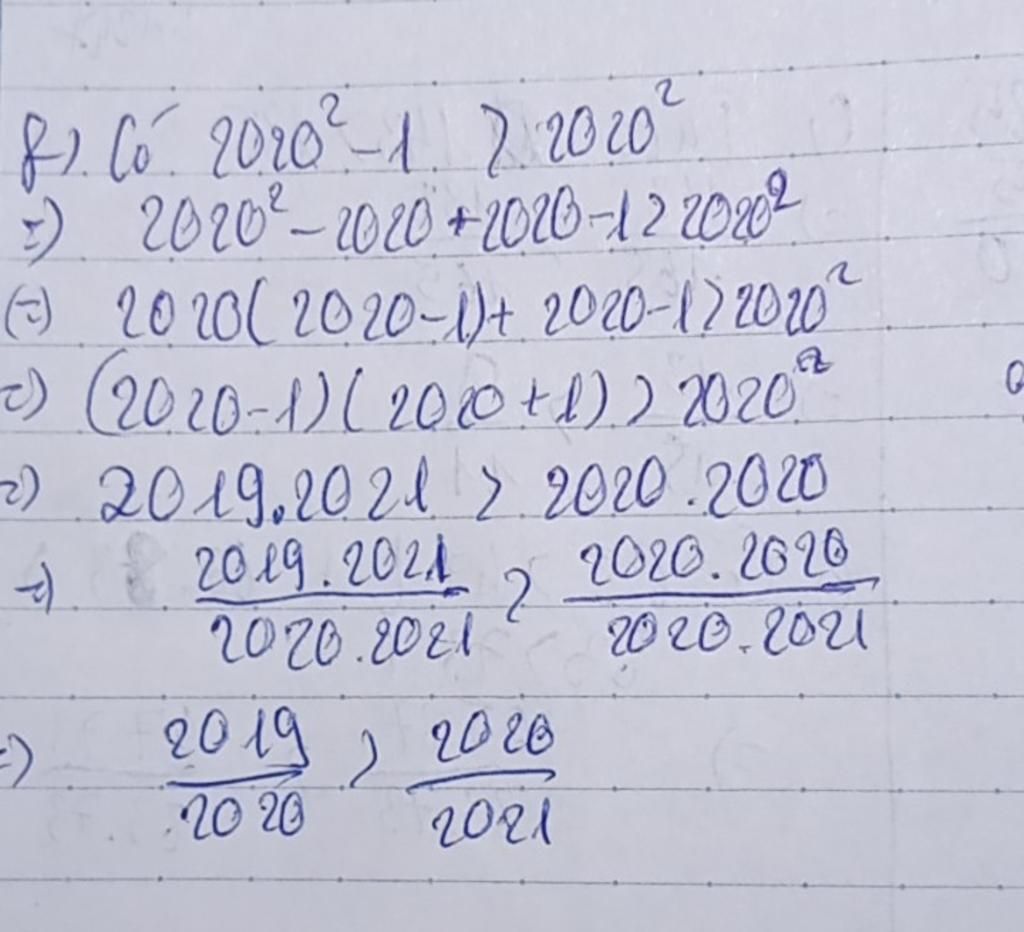 f). Có 2020² - 1 > 2020²
=) 2020² - 2020 + 2020 - 1 > 2020²
(=) 2020(2020 - 1) + 2020 - 1 > 2020²
=) (2020 - 1)(2020 + 1) > 2020²
=) 2019.2021 > 2020.2020
=) 2019.2021 / 2020.2021 > 2020.2020 / 2020.2021
=) 2019 / 2020 > 2020 / 2021